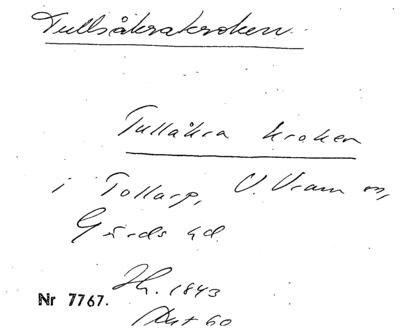 Tullsåkrakroken.
Tullåkra kroken
i Tollarp, V. Vram sn,
Gärds hd.
Nr 7767.
1843
Akt 60